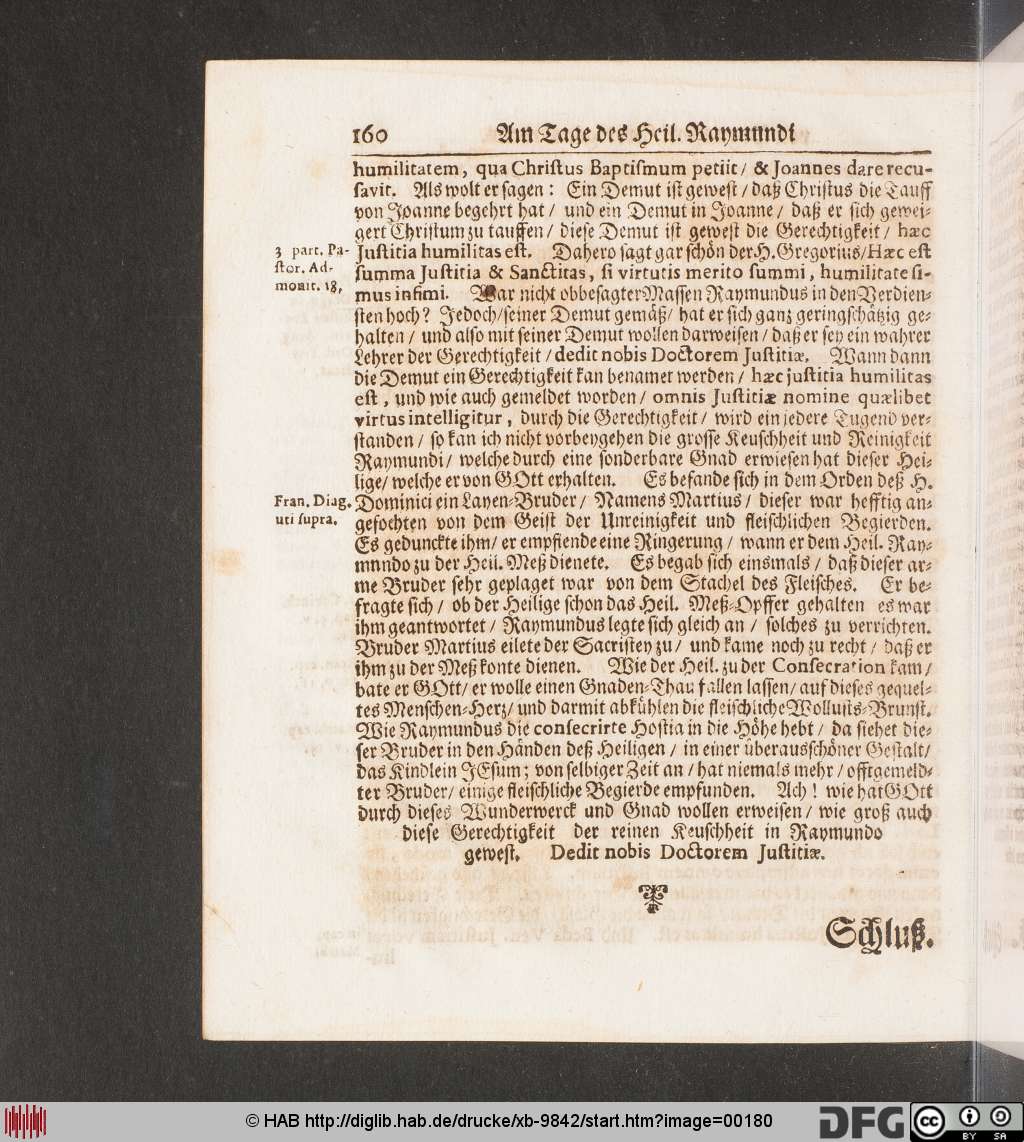 160 Am Tage des Heil. Raymundi
humilitatem, qua Christus Baptismum petiit / & Joannes dare recu-
savit. Als wolt er sagen: Ein Demut ist gewest / daß Christus die Tauff
von Joanne begehrt hat / und ein Demut in Joanne / daß er sich gewei-
gert Christum zu tauffen / diese Demut ist gewest die Gerechtigkeit / hæc
3 part. Pa-
stor. Ad-
monit. 18,
Justitia humilitas est. Dahero sagt gar schön der H. Gregorius / Hæc est
summa Justitia & Sanctitas, si virtutis merito summi, humilitate si-
mus infimi. War nicht obbesagter Massen Raymundus in den Verdien-
sten hoch? Jedoch / seiner Demut gemäß / hat er sich ganz geringschätzig ge-
halten / und also mit seiner Demut wollen darweisen / daß er sey ein wahrer
Lehrer der Gerechtigkeit / dedit nobis Doctorem Justitiæ. Wann dann
die Demut ein Gerechtigkeit kan benamet werden / hæc justitia humilitas
est, und wie auch gemeldet worden / omnis Justitiæ nomine quælibet
virtus intelligitur, durch die Gerechtigkeit / wird ein jedere Tugend ver-
standen / so kan ich nicht vorbeygehen die grosse Keuschheit und Reinigkeit
Raymundi / welche durch eine sonderbare Gnad erwiesen hat dieser Hei-
lige / welche er von GOtt erhalten. Es befande sich in dem Orden deß H.
Fran. Diag.
uti supra.
Dominici ein Layen-Bruder / Namens Martius / dieser war hefftig an-
gefochten von dem Geist der Unreinigkeit und fleischlichen Begierden.
Es gedunckte ihm / er empfiende eine Ringerung / wann er dem Heil. Ray-
mundo zu der Heil. Meß dienete. Es begab sich einsmals / daß dieser ar-
me Bruder sehr geplaget war von dem Stachel des Fleisches. Er be-
fragte sich / ob der Heilige schon das Heil. Meß-Opffer gehalten es war
ihm geantwortet / Raymundus legte sich gleich an / solches zu verrichten.
Bruder Martius eilete der Sacristey zu / und kame noch zu recht / daß er
ihm zu der Meß konte dienen. Wie der Heil. zu der Consecration kam /
bate er GOtt / er wolle einen Gnaden-Thau fallen lassen / auf dieses gequel-
tes Menschen-Herz / und darmit abkühlen die fleischliche Wollusts-Brunst.
Wie Raymundus die consecrirte Hostia in die Höhe hebt / da siehet die-
ser Bruder in den Händen deß Heiligen / in einer überausschöner Gestalt /
das Kindlein JEsum; von selbiger Zeit an / hat niemals mehr / offtgemeld-
ter Bruder / einige fleischliche Begierde empfunden. Ach! wie hat GOtt
durch dieses Wunderwerck und Gnad wollen erweisen / wie groß auch
diese Gerechtigkeit der reinen Keuschheit in Raymundo
gewest. Dedit nobis Doctorem Justitiæ.
Schluß.
© HAB http://diglib.hab.de/drucke/xb-9842/start.htm?image=00180
DFG
cc BY SA